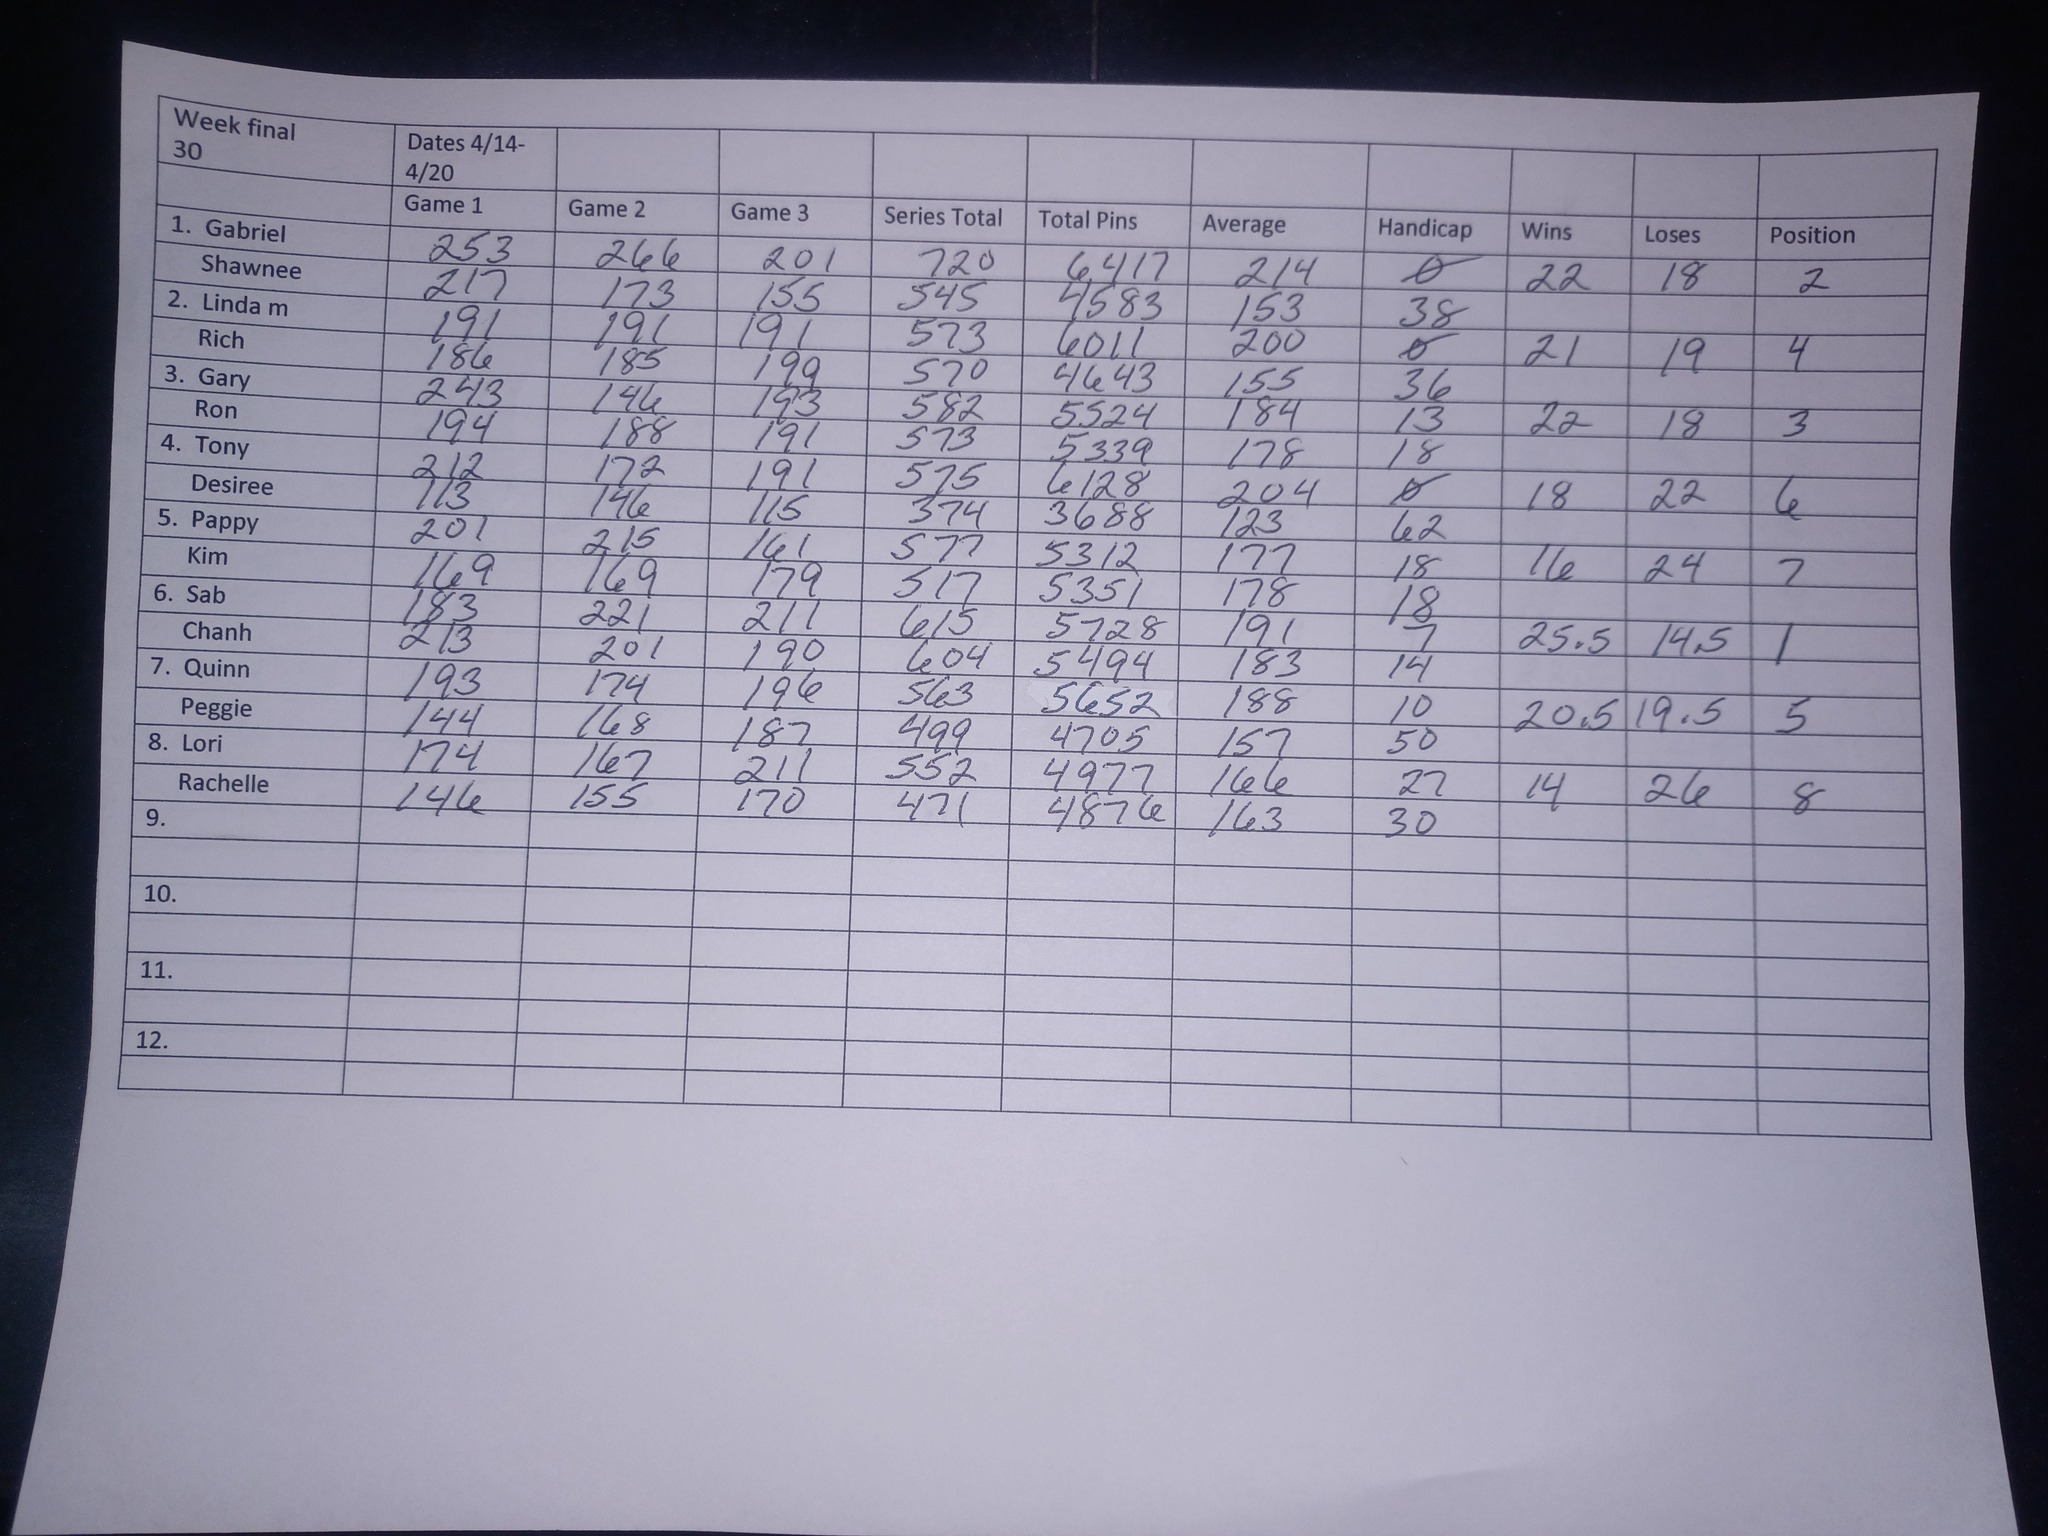 Week final 30 Dates 4/14-4/20
Game 1 Game 2 Game 3 Series Total Total Pins Average Handicap Wins Loses Position
1. Gabriel 253 266 201 720 6417 214 0 22 18 2
Shawnee 217 173 155 545 4583 153 38
2. Linda m 191 191 191 573 6011 200 0 21 19 4
Rich 186 185 199 570 4643 155 36
3. Gary 243 146 193 582 5524 184 13 22 18 3
Ron 194 188 191 573 5339 178 18
4. Tony 212 172 191 575 6128 204 0 18 22 6
Desiree 113 146 115 374 3688 123 62
5. Pappy 201 215 161 577 5312 177 18 16 24 7
Kim 169 169 179 517 5351 178 18
6. Sab 183 221 211 615 5728 191 7 25.5 14.5 1
Chanh 213 201 190 604 5494 183 14
7. Quinn 193 174 196 563 5652 188 10 20.5 19.5 5
Peggie 144 168 187 499 4705 157 50
8. Lori 174 167 211 552 4977 166 27 14 26 8
Rachelle 146 155 170 471 4876 163 30
9.
10.
11.
12.